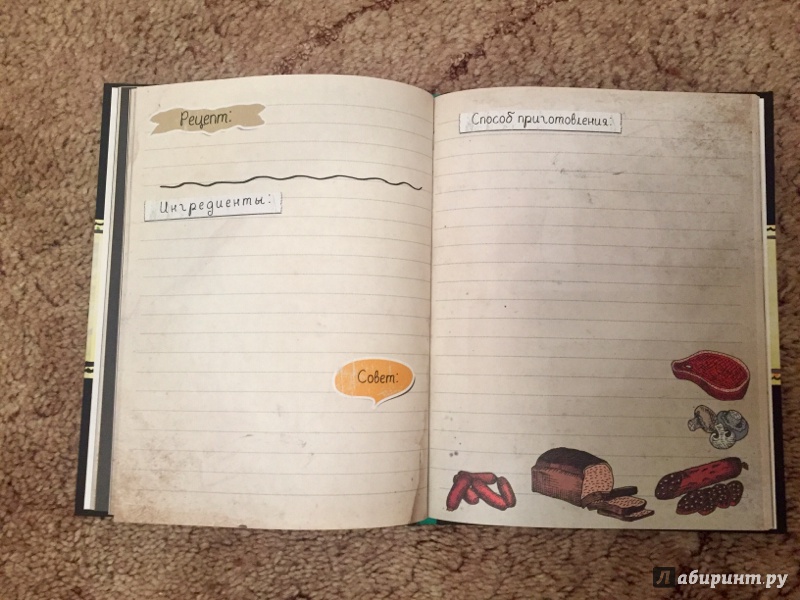 Рецепт:
Ингредиенты:
Совет:
Способ приготовления:
Лабиринт.ру